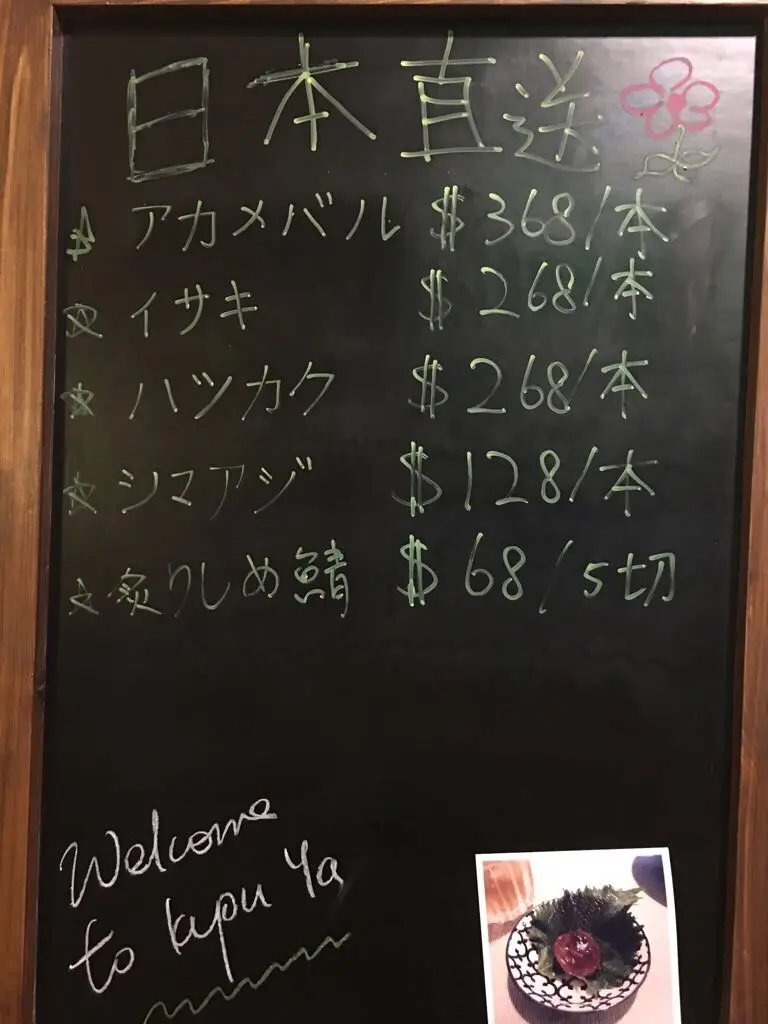 日本直送
アカメバル $368/本
イサキ $268/本
ハツカク $268/本
シマアジ $128/本
炙りしめ鯖 $68/5切
Welcome
to kipu Ya